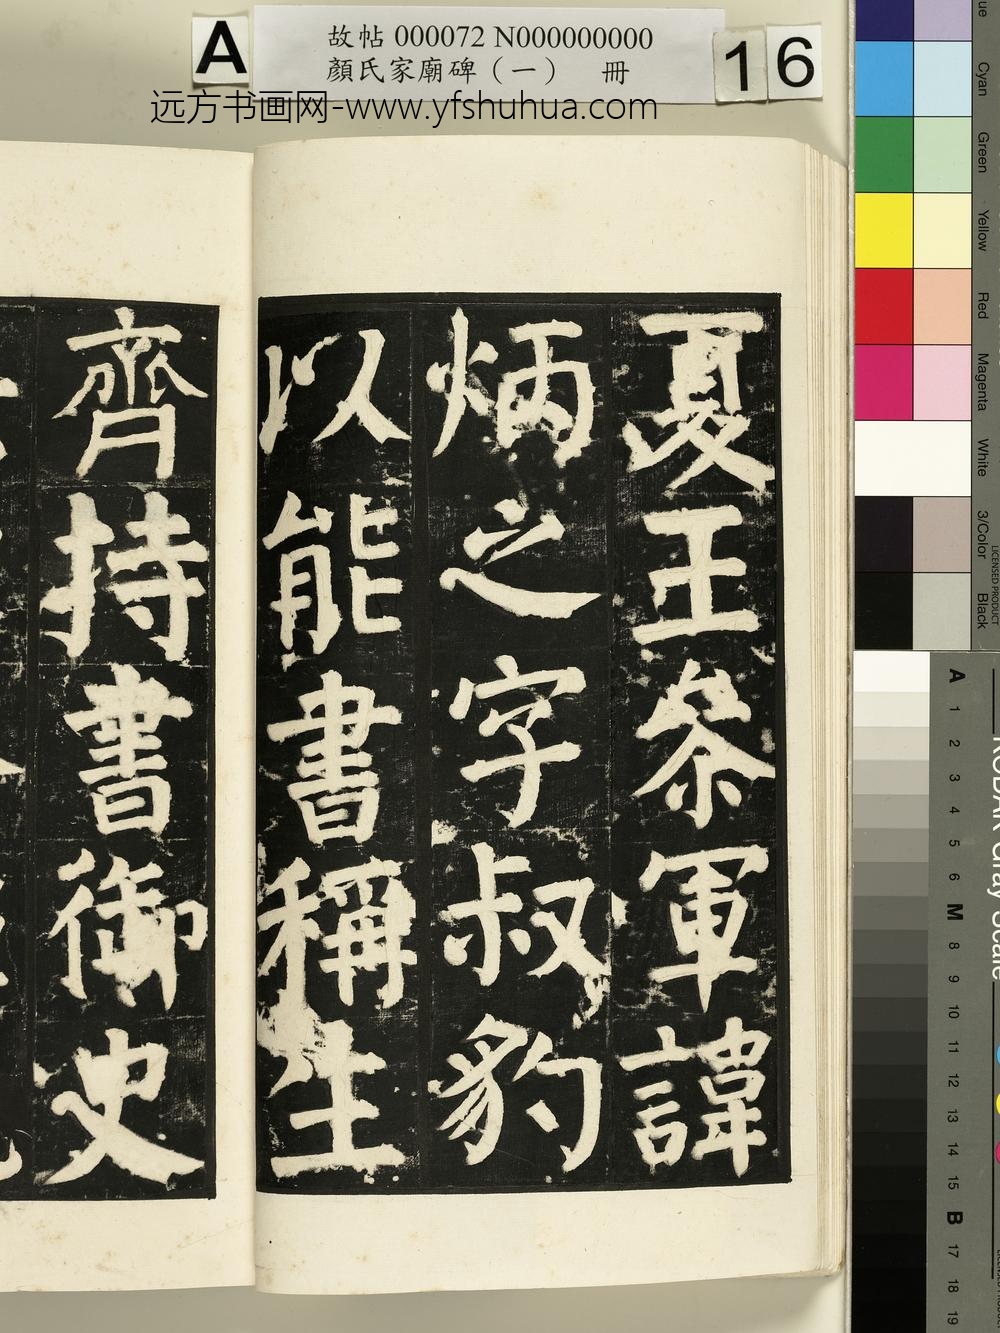 A
故帖 000072 N000000000
顏氏家廟碑（一）　冊
16
远方书画网-www.yfshuhua.com
夏王叅軍諱
炳之字叔豹
以能書稱生
齊持書御史
Cyan
Green
Yellow
Red
Magenta
White
3/Color
Black
LICENSED PRODUCT
KODAK Gray Scale
A 1 2 3 4 5 6 M 8 9 10 11 12 13 14 15 B 17 18 19